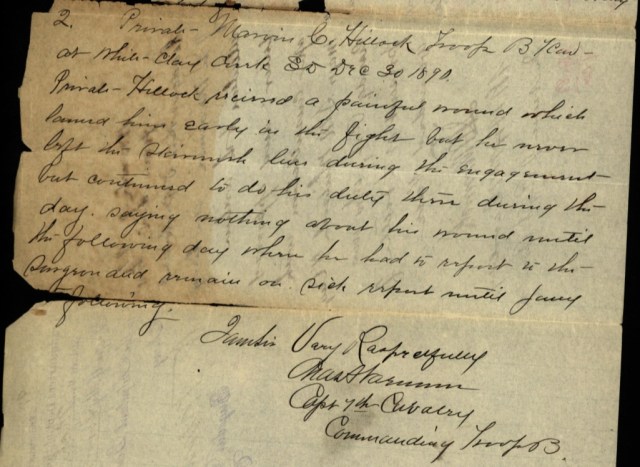 2. Private Marvin C. Hillock Troop B 7 Cav-
at White Clay Creek SD Dec 30 1890.
Private Hillock received a painful wound which
lamed him early in the fight but he never
left the skirmish lines during the engagement
but continued to do his duty there during the
day. saying nothing about his wound until
the following day when he had to report to the
Surgeon and remains on sick report until Jany
following.
I am Sir Very Respectfully
Capt 7th Cavalry
Commanding Troop B.